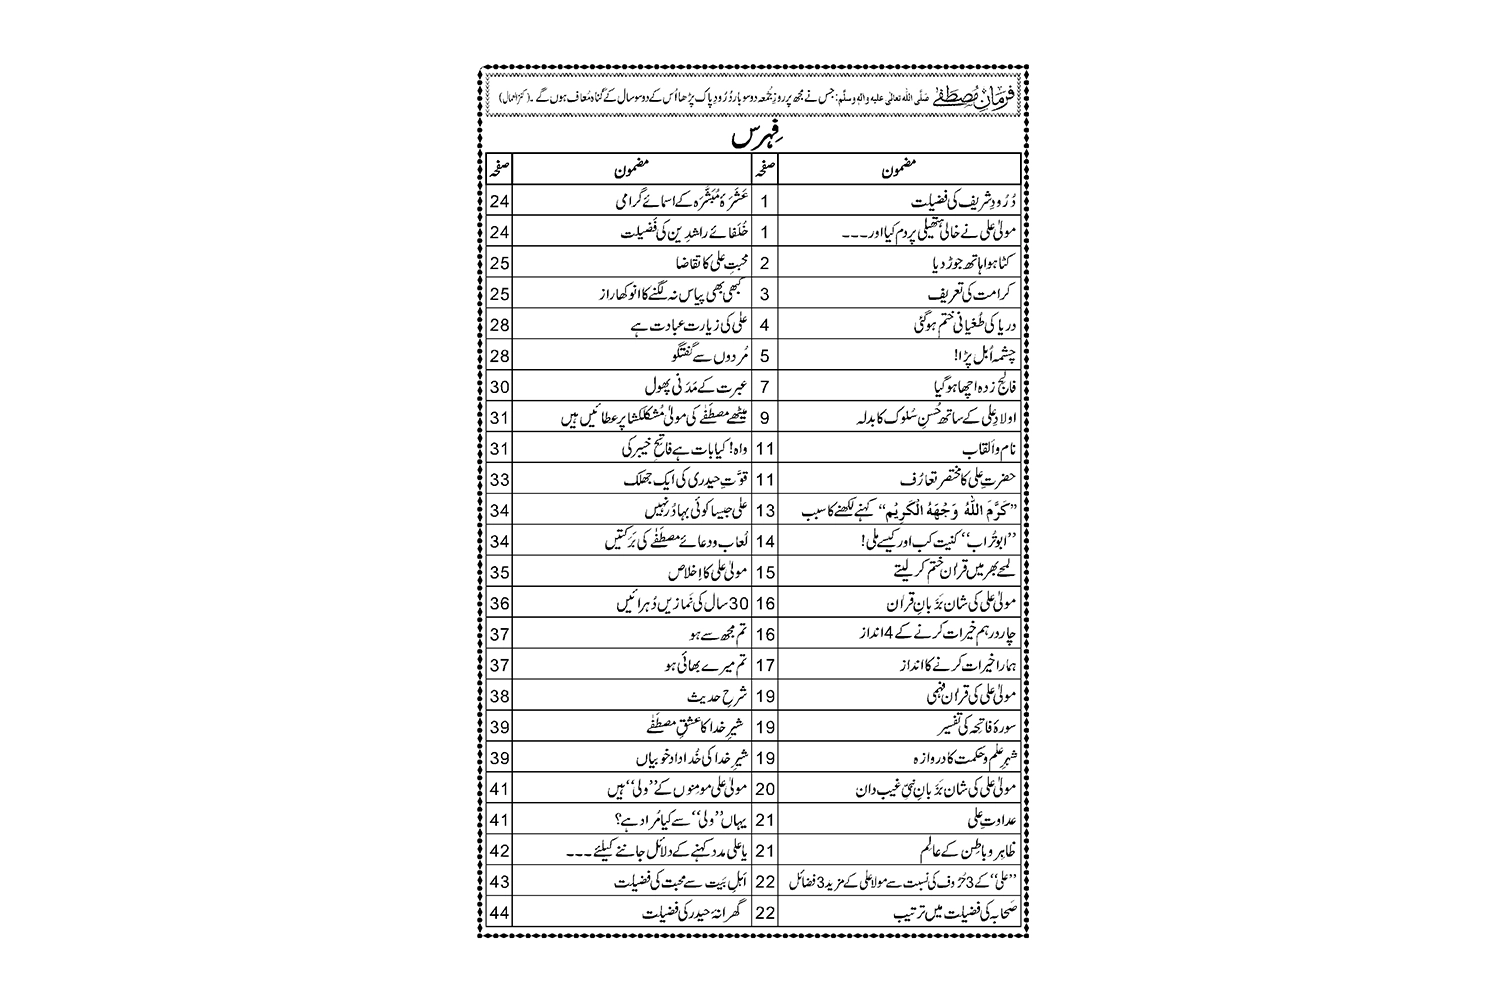 فرمانِ مُصطَفٰے صَلَّی اللہ تعالٰی علیہ والہٖ وسلَّم: جس نے مجھ پر روزِ جُمعہ دو سو بار دُرُودِ پاک پڑھا اُس کے دو سو سال کے گناہ مُعاف ہوں گے۔ (کنزالعمال)
فِہرس
مضمون صفحہ مضمون صفحہ
دُرُود شریف کی فضیلت 1 عَشَرَۂ مُبَشَّرَہ کے اسمائے گرامی 24
مولیٰ علی نے خالی ہتھیلی پر دم کیا اور۔۔۔ 1 خُلَفائے راشدِین کی فَضیلت 24
کٹا ہوا ہاتھ جوڑ دیا 2 محبتِ علی کا تقاضا 25
کرامت کی تعریف 3 کبھی بھی پیاس نہ لگنے کا انوکھا راز 25
دریا کی طُغیانی ختم ہوگئی 4 علی کی زیارت عبادت ہے 28
چشمہ اُبل پڑا! 5 مُردوں سے گفتگو 28
فالج زدہ اچھا ہو گیا 7 عبرت کے مَدَنی پھول 30
اولادِ علی کے ساتھ حُسنِ سُلوک کا بدلہ 9 میٹھے مصطَفٰے کی مولیٰ مُشکلکشا پر عطائیں ہیں 31
نام و اَلقاب 11 واہ! کیا بات ہے فاتِحِ خیبر کی 31
حضرتِ علی کا مختصر تعارُف 11 قوَّتِ حیدری کی ایک جھلک 33
”کَرَّمَ اللہُ وَجْہَہُ الْکَرِیْم“ کہنے لکھنے کا سبب 13 علی جیسا کوئی بہادُر نہیں 34
’’ابوتُراب‘‘ کنیت کب اور کیسے ملی! 14 لُعاب و دعائے مصطَفٰے کی بَرَکتیں 34
لمحے بھر میں قراٰن ختم کر لیتے 15 مولیٰ علی کا اِخلاص 35
مولیٰ علی کی شان بَزَبانِ قراٰن 16 30 سال کی نَمازیں دُہرائیں 36
چار درہم خیرات کرنے کے 4 انداز 16 تم مجھ سے ہو 37
ہمارا خیرات کرنے کا انداز 17 تم میرے بھائی ہو 37
مولیٰ علی کی قراٰن فہمی 19 شرحِ حدیث 38
سورۂ فاتحہ کی تفسیر 19 شیرِ خدا کا عشقِ مصطَفٰے 39
شہرِ علم و حکمت کا دروازہ 19 شیرِ خدا کی خُداداد خوبیاں 39
مولیٰ علی کی شان بَزَبانِ نبیِّ غیب دان 20 مولیٰ علی مومِنوں کے ’’ولی‘‘ ہیں 41
عداوتِ علی 21 یہاں ’’ولی‘‘ سے کیا مُراد ہے؟ 41
ظاہِر و باطِن کے عالِم 21 یا علی مدد کہنے کے دلائل جاننے کیلئے۔۔۔ 42
’’علی‘‘ کے 3 حُرُوف کی نسبت سے مولا علی کے مزید 3 فضائل 22 اَہلِ بَیت سے محبت کی فضیلت 43
صَحابہ کی فضیلت میں ترتیب 22 گھرانۂ حیدر کی فضیلت 44